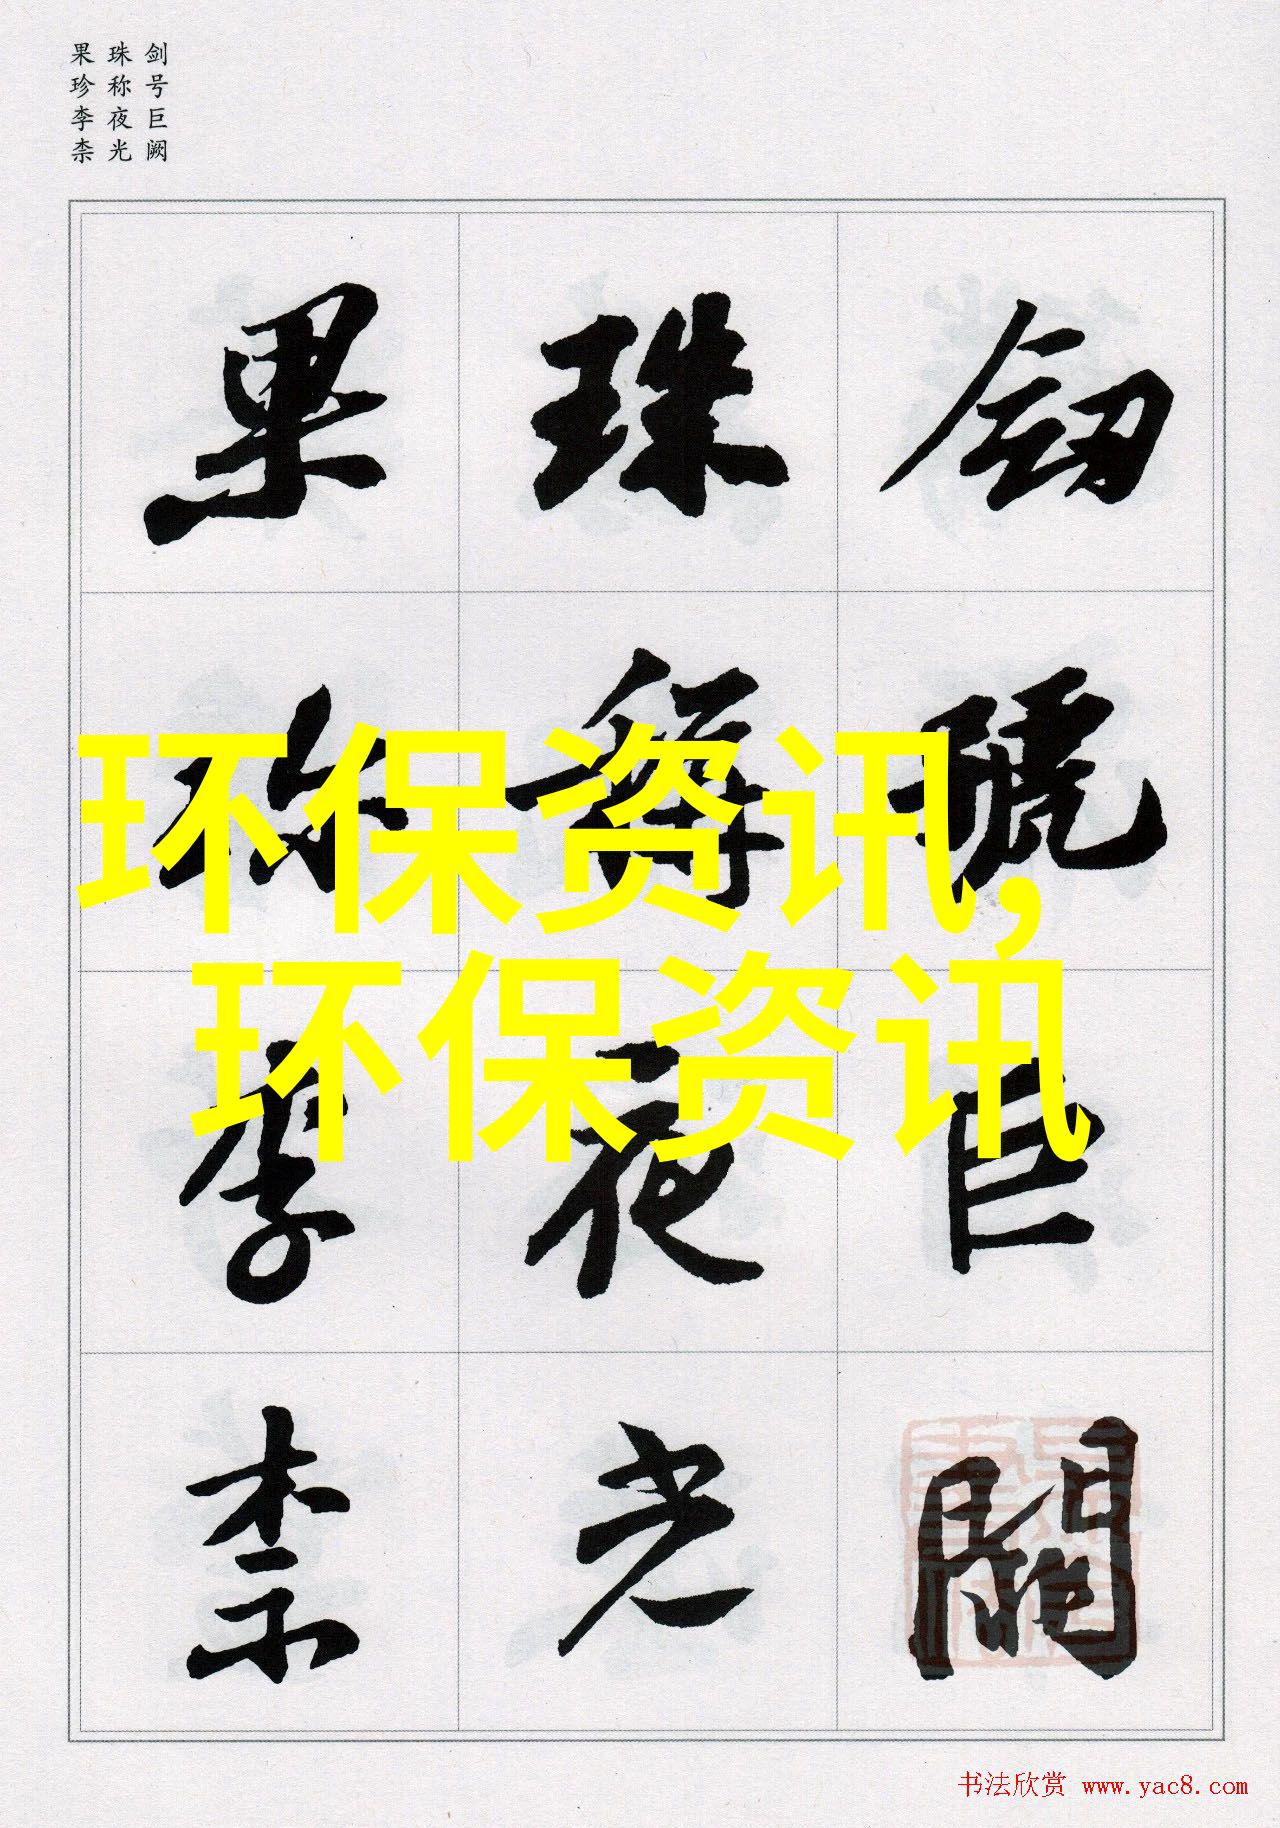 剑号巨阙
珠称夜光
果珍李柰
釰號巨闕
珠稱夜光
果珎李柰
环保资讯,
环保资讯
书法欣赏 www.yac8.com